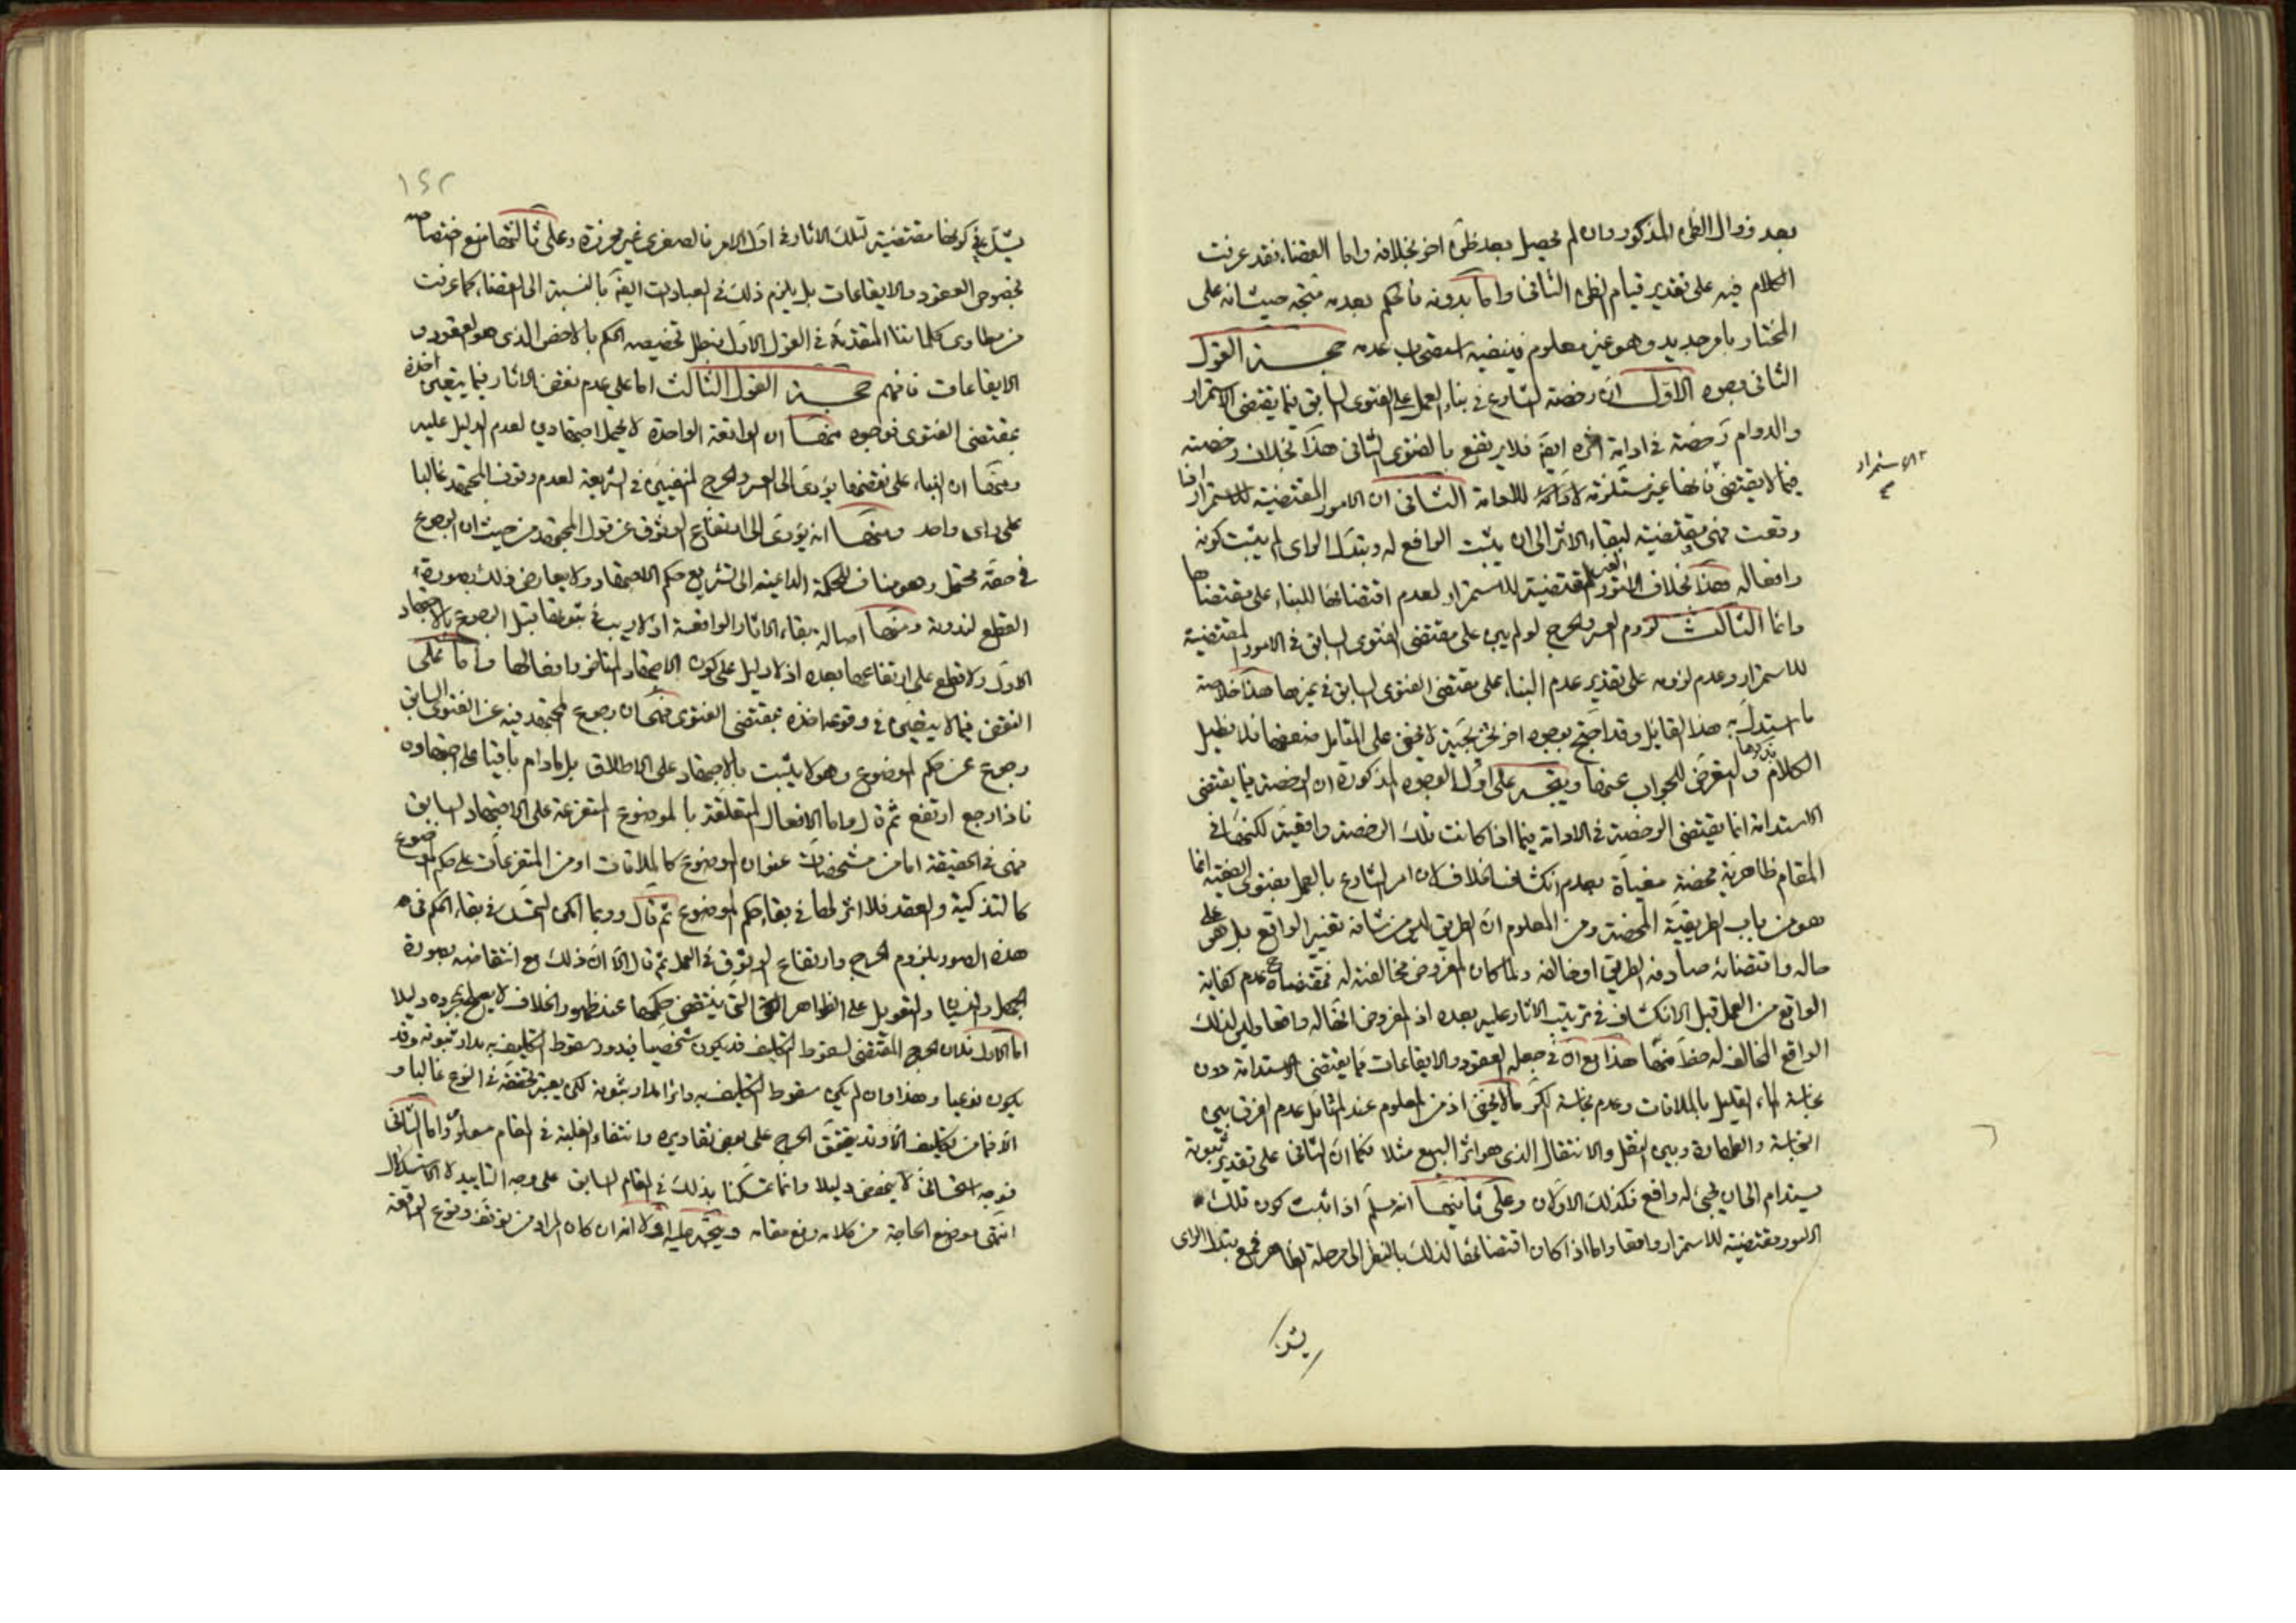 بعد زوال الظن المذكور وان لم يحصل بعد ظن اخر بخلافه واما القضاء فقد عرفت
الكلام فيه على تقدير قيام الظن الثانى واما بدونه فالحكم بعدمه متجه حيث انه على
المختار بامر جديد وهو غير معلوم فينفيه استصحاب عدمه حجـــة القول
الثانى وجوه الاول ان رخصة الشارع فى بناء العمل على الفتوى السابق فيما يقتضى الاستمرار
والدوام رخصة فى ادامة اثره ايضا فلا يرتفع بالفتوى الثانى هذا بخلاف رخصته
فيما لا يقتضى فانها غير مستلزمة للادامة الثانى ان الامور المقتضية للاستمرار اذا
الاستمرار
وقعت فهى مقتضية لبقاء الاثر الى ان يثبت الرافع له وتبدل الراى لم يثبت كونه
رافعا له هذا بخلاف الامور الغير المقتضية للاستمرار لعدم اقتضائها للبناء على مقتضاها
واما الثالث لزوم العسر والحرج لو لم يبن على مقتضى الفتوى السابق فى الامور المقتضية
للاستمرار وعدم لزومه على تقدير عدم البناء على مقتضى الفتوى السابق فى غيرها هذا خلاصة
ما استدل به هذا القائل وقد احتج بوجوه اخر غير نجية لا يخفى على المتامل ضعفها فلا نطيل
الكلام بذكرها والتعرض للجواب عنها ويتجه على اول الوجوه المذكورة ان الرخصة فيما يقتضى
الاستدامة انما يقتضى الرخصة فى الادامة فيما اذا كانت تلك الرخصة واقعية لكنها فى
المقام ظاهرية محضة مغياة بعدم انكشاف الخلاف لان امر الشارع بالعمل بفتوى الفقيه انما
هو من باب الطريقية المحضة ومن المعلوم ان الطريق ليس من شانه تغيير الواقع بل هو على
حاله واقتضائه صادفه الطريق او خالفه ولما كان المفروض مخالفته له فمقتضاه عدم كفاية
الواقع من العمل قبل الانكشاف فى ترتيب الاثار عليه بعده اذ المفروض انها له واقعا وليس لذلك
الواقع المخالف له حظ منها هذا مع ان فى جعله العقود والايقاعات مما يقتضى الاستدامة دون
نجاسة الماء القليل بالملاقات وعدم نجاسة الكر ما لا يخفى اذ من المعلوم عند المتامل عدم الفرق بين
النجاسة والطهارة وبين النقل والانتقال الذى هو اثر البيع مثلا فكما ان الثانى على تقدير ثبوته
يستدام الى ان يجئ له رافع فكذلك الاولان وعلى ثانيها انه مسلم اذا ثبت كون تلك
الامور مقتضية للاستمرار واقعا واما اذا كان اقتضائها لذلك بالنظر الى مرحلة الظاهر فمع تبدل الراى
يشك
١٤٢
يشك فى كونها مقتضية لتلك الاثار فى اول الامر فالصغرى غير محرزة وعلى ثالثها منع اختصاصه
بخصوص العقود والايقاعات بل يلزم ذلك فى العبادات ايضا بالنسبة الى القضاء كما عرفت
من مطاوى كلماتنا المتقدمة فى القول الاول فبطل تخصيص الحكم بالاخص الذى هو العقود و
الايقاعات فافهم حجـــة القول الثالث اما على عدم نقض الاثار فيما يتعين اخذه
بمقتضى الفتوى فوجوه منها ان الواقعة الواحدة لا يحمل اجتهادين لعدم الدليل عليه
ومنها ان البناء على نقضها يؤدى الى العسر والحرج المنفيين فى الشريعة لعدم وقوف المجتهد غالبا
على راى واحد ومنها انه يؤدى الى ارتفاع الوثوق عن قول المجتهد من حيث ان الرجوع
فى حقه محتمل وهو مناف للحكمة الداعية الى تشريع حكم الاجتهاد ولا يعارض ذلك بصورة
القطع لندرته ومنها اصالة بقاء الاثار الواقعة اذ لا ريب فى ثبوتها قبل الرجوع بالاجتهاد
الاول ولا قطع على ارتفاعها بعده اذ لا دليل على كون الاجتهاد المتاخر رافعا لها واما على
النقض فيما لا يتعين فى وقوعه اخذه بمقتضى الفتوى فهى ان رجوع المجتهد فيه عن الفتوى السابق
رجوع عن حكم الموضوع وهو لا يثبت بالاجتهاد على الاطلاق بل ما دام باقيا على اجتهاده
فاذا رجع ارتفع ثم قال واما الافعال المتعلقة بالموضوع المتفرعة على الاجتهاد السابق
فهى فى الحقيقة اما من مشخصات عنوان الموضوع كالملاقات او من المتفرعات على حكم الموضوع
كالتذكية والعقد فلا اثر لها فى بقاء حكم الموضوع ثم قال وربما امكن التمسك فى بقاء الحكم فى
هذه الصور بلزوم الحرج وارتفاع الوثوق فى العمل ثم قال الا ان ذلك مع انتقاضه بصورة
الجهل والنسيان والتعويل على الظواهر التى ينتقض حكمها عند ظهور الخلاف لا يصلح بمجرده دليلا
اما الاول فلان الحرج المقتضى لسقوط التكليف قد يكون شخصيا فيدور سقوط التكليف به مدار ثبوته وقد
يكون نوعيا وهذا وان لم يكن سقوط التكليف به دائرا مدار ثبوته لكن يعتبر تحققه فى النوع غالبا و
الا فما من تكليف الا وقد يتحقق الحرج على بعض تقاديره وانتفاء الغلبة فى المقام معلوم واما الثانى
فوجه استحسانى لا ينهض دليلا وانما تمسكنا بذلك فى المقام السابق على وجه التاييد لا الاستدلال
انتهى موضع الحاجة من كلامه رفع مقامه ويتجه عليه اولا انه ان كان المراد من توقف وقوع الواقعة